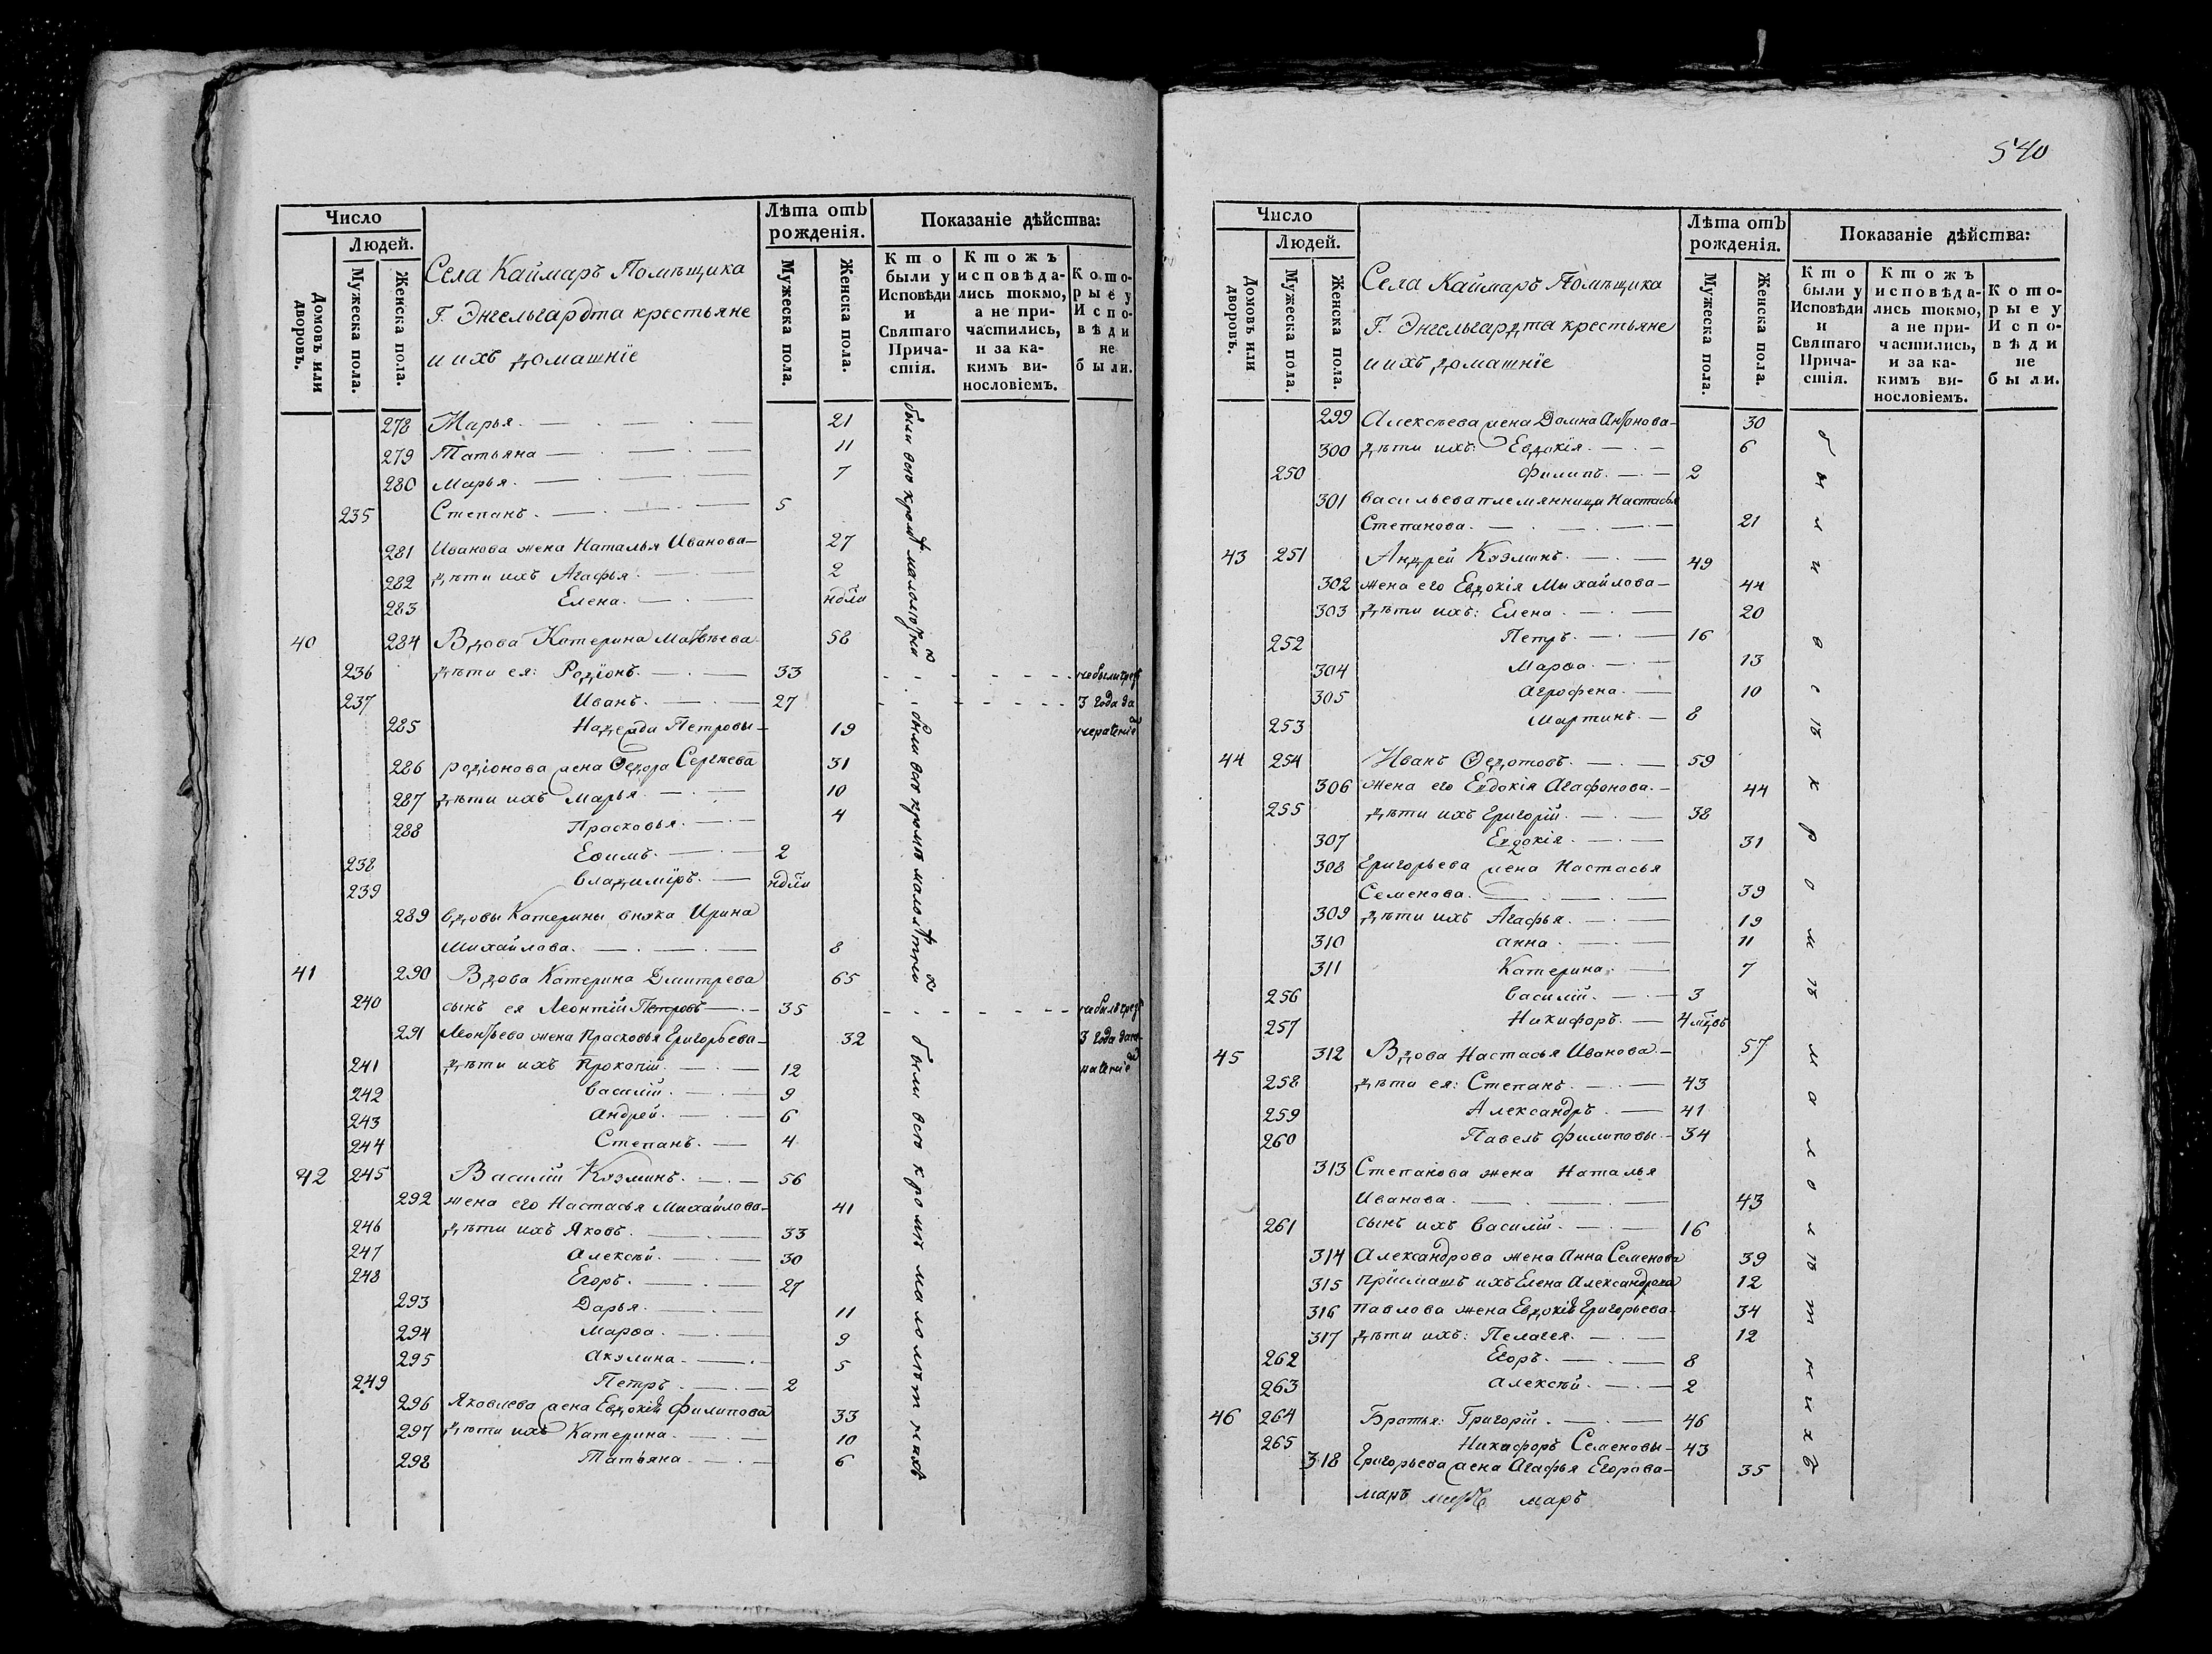 Число
Людей.
Домовъ или дворовъ.
Мужеска пола.
Женска пола.
Села Каймаръ Помѣщика
Г. Энгельгардта крестьяне
и ихъ домашнїе
Лѣта отъ рожденія.
Мужеска пола.
Женска пола.
Показаніе дѣйства:
Кто были у Исповѣди и Святаго Причастія.
Ктожъ исповѣдались токмо, а не причастились, и за какимъ винословіемъ.
Которые у Исповѣди не были.
278 Марья. 21
279 Татьяна 11
280 Марья. 7
235 Степанъ. 5
281 Иванова жена Наталья Иванова 27
282 дѣти ихъ Агафья. 2
283 Елена. ндли
40 284 Вдова Катерина Матвѣева 58
236 дѣти ея: Родїонъ. 33 небыли чрез
237 Иванъ. 27 3 года за
285 Надежда Петровы 19
286 родїонова жена Ѳедора Сергѣева 31
287 дѣти ихъ Марья 10
288 Прасковья. 4
238 Ефимъ. 2
239 Владимїръ. ндли
289 вдовы Катерины внука Ирина
Михайлова. 8
41 290 Вдова Катерина Дмитрева 65
240 сынъ ея Леонтїй Петровъ 35 небылъ чрез
291 Леонтьева жена Прасковья Григорьева 32 3 года за
241 дѣти ихъ Прокопїй. 12
242 Василїй. 9
243 Андрей. 6
244 Степанъ. 4
42 245 Василїй Кузминъ. 56
292 жена его Настасья Михайлова 41
246 дѣти ихъ Яковъ. 33
247 Алексѣй. 30
248 Егоръ. 27
293 Дарья. 11
294 Марѳа. 9
295 Акулина. 5
249 Петръ. 2
296 Яковлева жена Евдокїя Филипова 33
297 дѣти ихъ Катерина. 10
298 Татьяна. 6
были всѣ кромѣ малолѣтних
были всѣ кромѣ малолѣтних
были всѣ кромѣ малолѣтнихъ
540
Число
Людей.
Домовъ или дворовъ.
Мужеска пола.
Женска пола.
Села Каймаръ Помѣщика
Г. Энгельгардта крестьяне
и ихъ домашнїе
Лѣта отъ рожденія.
Мужеска пола.
Женска пола.
Показаніе дѣйства:
Кто были у Исповѣди и Святаго Причастія.
Ктожъ исповѣдались токмо, а не причастились, и за какимъ винословіемъ.
Которые у Исповѣди не были.
299 Алексѣева жена Домна Антонова 30
300 дѣти ихъ: Евдокїя. 6
250 Филипъ. 2
301 Васильева племянница Настасья
Степанова. 21
43 251 Андрей Кузминъ. 49
302 жена его Евдокїя Михайлова 44
303 дѣти ихъ: Елена 20
252 Петръ. 16
304 Марѳа. 13
305 Агрофена. 10
253 Мартинъ. 8
44 254 Иванъ Ѳедотовъ. 59
306 жена его Евдокїя Агафонова. 44
255 дѣти ихъ Григорїй. 38
307 Евдокїя. 31
308 Григорьева жена Настасья
Семенова. 39
309 дѣти ихъ Агафья. 19
310 Анна. 11
311 Катерина. 7
256 Василїй. 3
257 Никифоръ. 4 мцъ
45 312 Вдова Настасья Иванова. 57
258 дѣти ея: Степанъ. 43
259 Александръ. 41
260 Павелъ Филиповы. 34
313 Степанова жена Наталья
Иванова. 43
261 сынъ ихъ Василїй. 16
314 Александрова жена Анна Семенова 39
315 прїимашъ ихъ Елена Александрова 12
316 Павлова жена Евдокїя Григорьева 34
317 дѣти ихъ: Пелагея. 12
262 Егоръ. 8
263 Алексѣй. 2
46 264 Братья: Григорїй. 46
265 Никифоръ Семеновы 43
318 Григорьева жена Агафья Егорова 35
были всѣ кромѣ малолѣтнихъ